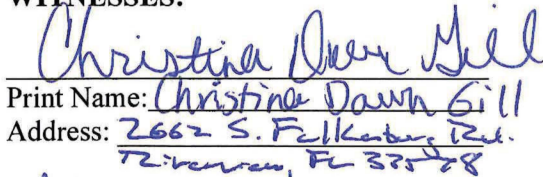 WITNESSES:
Christina Dawn Gill
Print Name: Christina Dawn Gill
Address: 2662 S. Falkenburg Rd.
Riverview, FL 33578